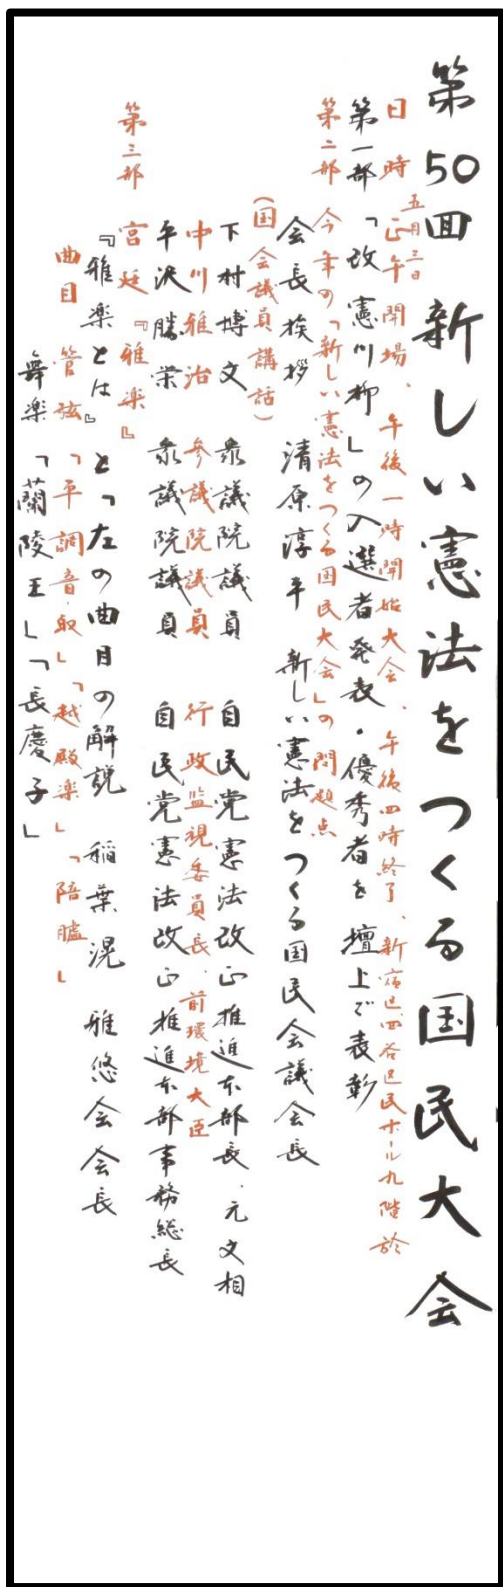 第50回 新しい憲法をつくる国民大会
日時 五月三日 正午開場、午後一時開始大会、午後四時終了、新宿区四谷区民ホール九階於
第一部 「改憲川柳」の入選者発表・優秀者を壇上で表彰
第二部 今年の「新しい憲法をつくる国民大会」の問題点
会長挨拶 清原淳平 新しい憲法をつくる国民会議会長
(国会議員講話)
下村博文 衆議院議員 自民党憲法改正推進本部長、元文相
中川雅治 参議院議員 行政監視委員長、前環境大臣
平沢勝栄 衆議院議員 自民党憲法改正推進本部事務総長
第三部 宮廷『雅楽』
『雅楽とは』と「左の曲目の解説 稲葉滉 雅悠会会長
曲目 管弦 「平調音取」「越殿楽」「陪臚」
舞楽 「蘭陵王」「長慶子」